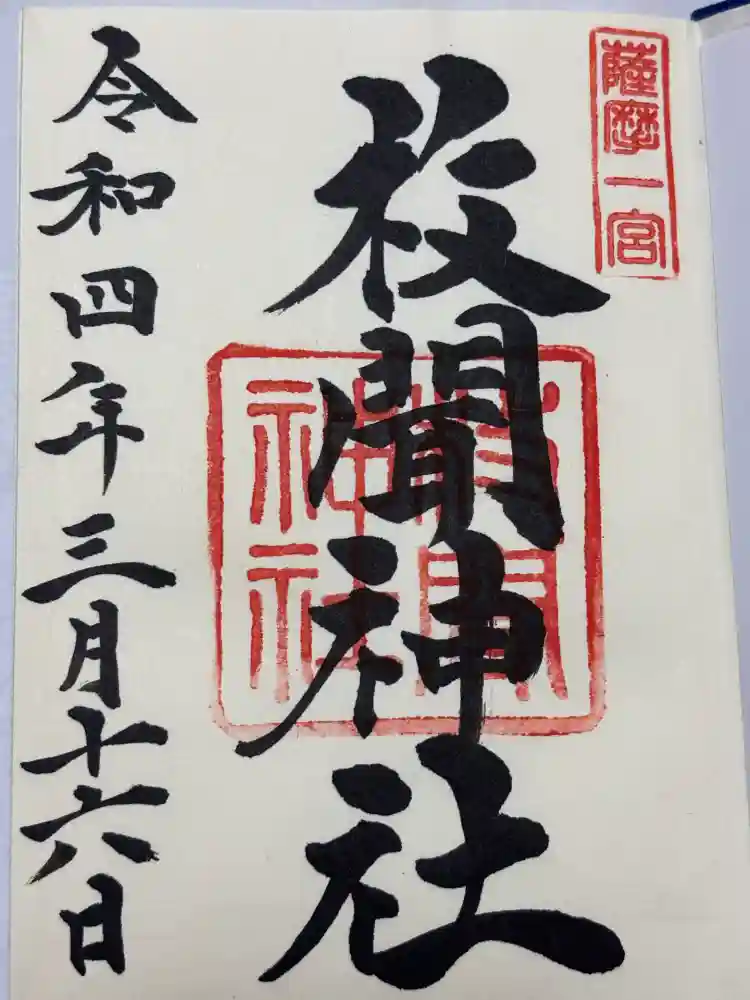 薩摩一宮
枚聞神社
枚聞
神社
令和四年三月十六日